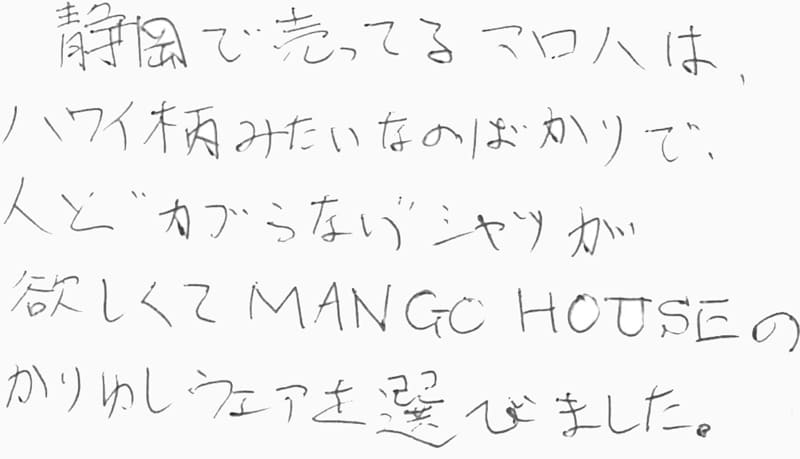 静岡で売ってるアロハは、
ハワイ柄みたいなのばかりで、
人と"カブらない"シャツが
欲しくてMANGO HOUSEの
かりゆしウェアを選びました。